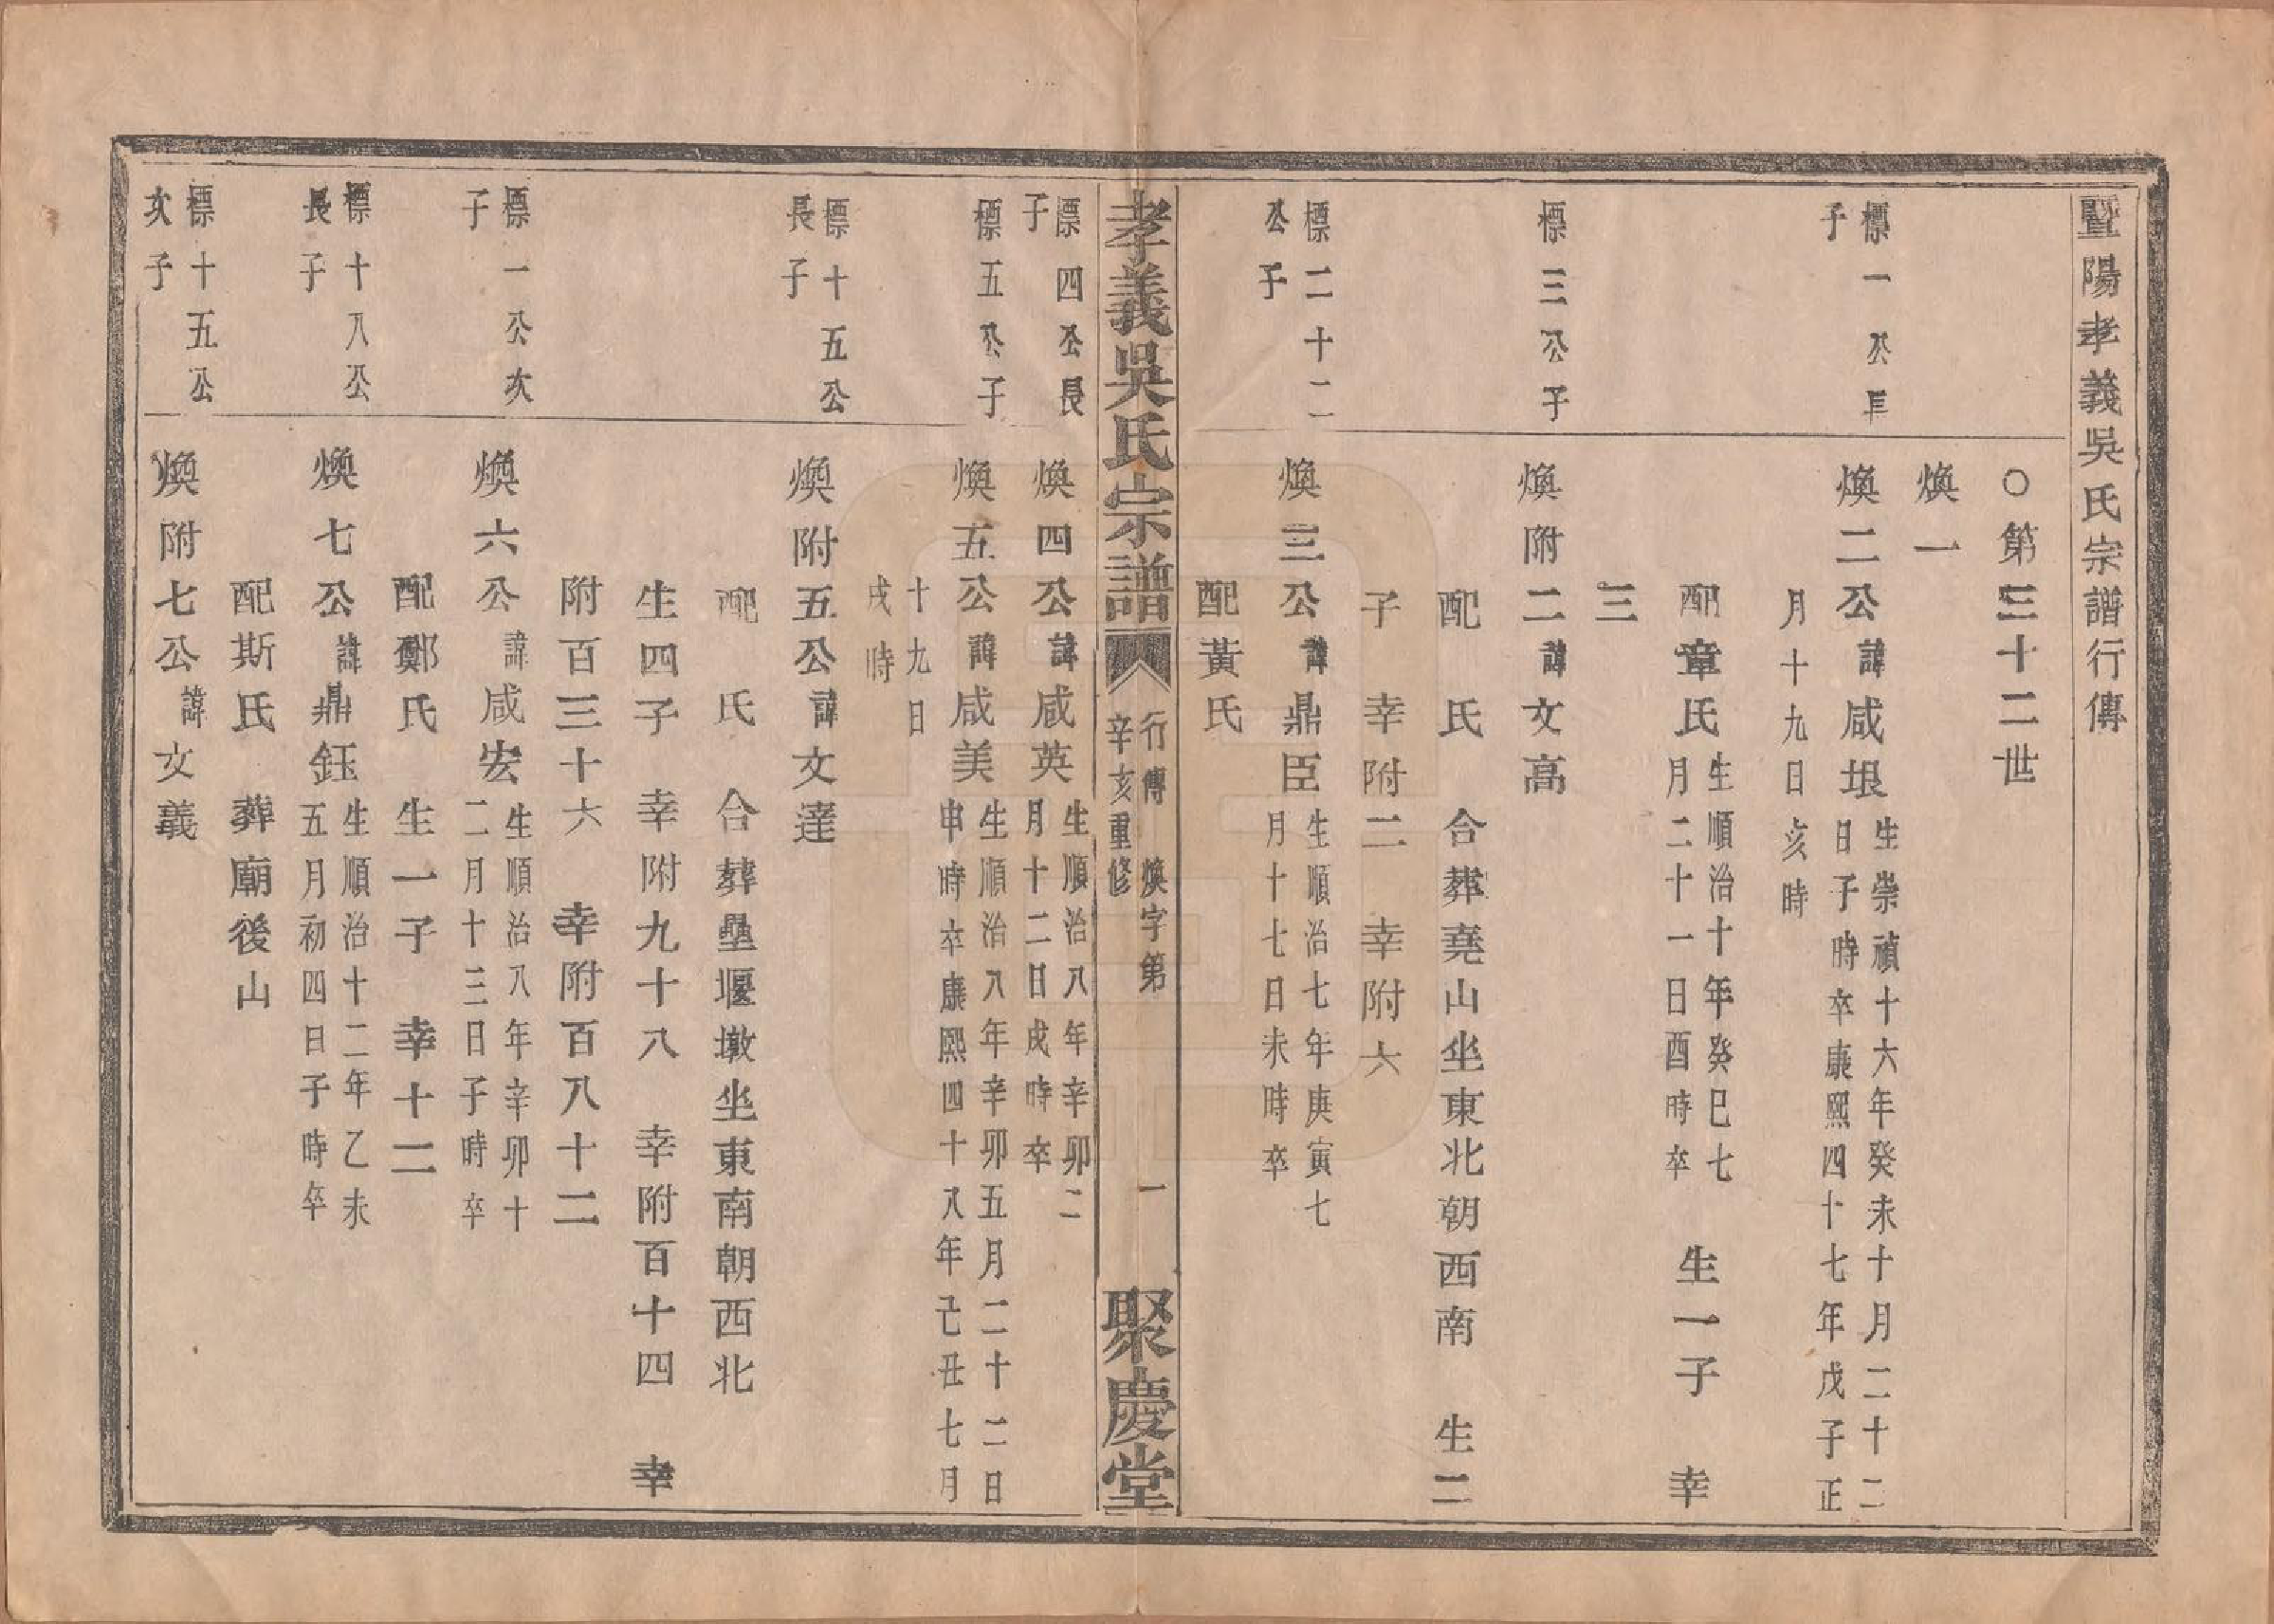 暨陽孝義吳氏宗譜行傳
〇第三十二世
煥一
標一公長
子
煥二公諱咸垠生崇禎十六年癸未十月二十二
日子時卒康熙四十七年戊子正
月十九日亥時
配章氏生順治十年癸巳七
月二十一日酉時卒
生一子 幸
三
標三公子
煥附二諱文高
配 氏 合葬堯山坐東北朝西南 生二
子 幸附二 幸附六
標二十二
公子
煥三公諱鼎臣生順治七年庚寅七
月十七日未時卒
配黃氏
孝義吳氏宗譜
行傳 煥字第 一
辛亥重修
聚慶堂
標四公長
子
煥四公諱咸英生順治八年辛卯二
月十二日戌時卒
標五公子
煥五公諱咸美生順治八年辛卯五月二十二日
申時卒康熙四十八年己丑七月
十九日
戌時
標十五公
長子
煥附五公諱文達
配 氏 合葬壘堰墩坐東南朝西北
生四子 幸附九十八 幸附百十四 幸
附百三十六 幸附百八十二
標一公次
子
煥六公諱咸宏生順治八年辛卯十
二月十三日子時卒
配鄭氏 生一子 幸十二
標十八公
長子
煥七公諱鼎鈺生順治十二年乙未
五月初四日子時卒
配斯氏 葬廟後山
標十五公
次子
煥附七公諱文義